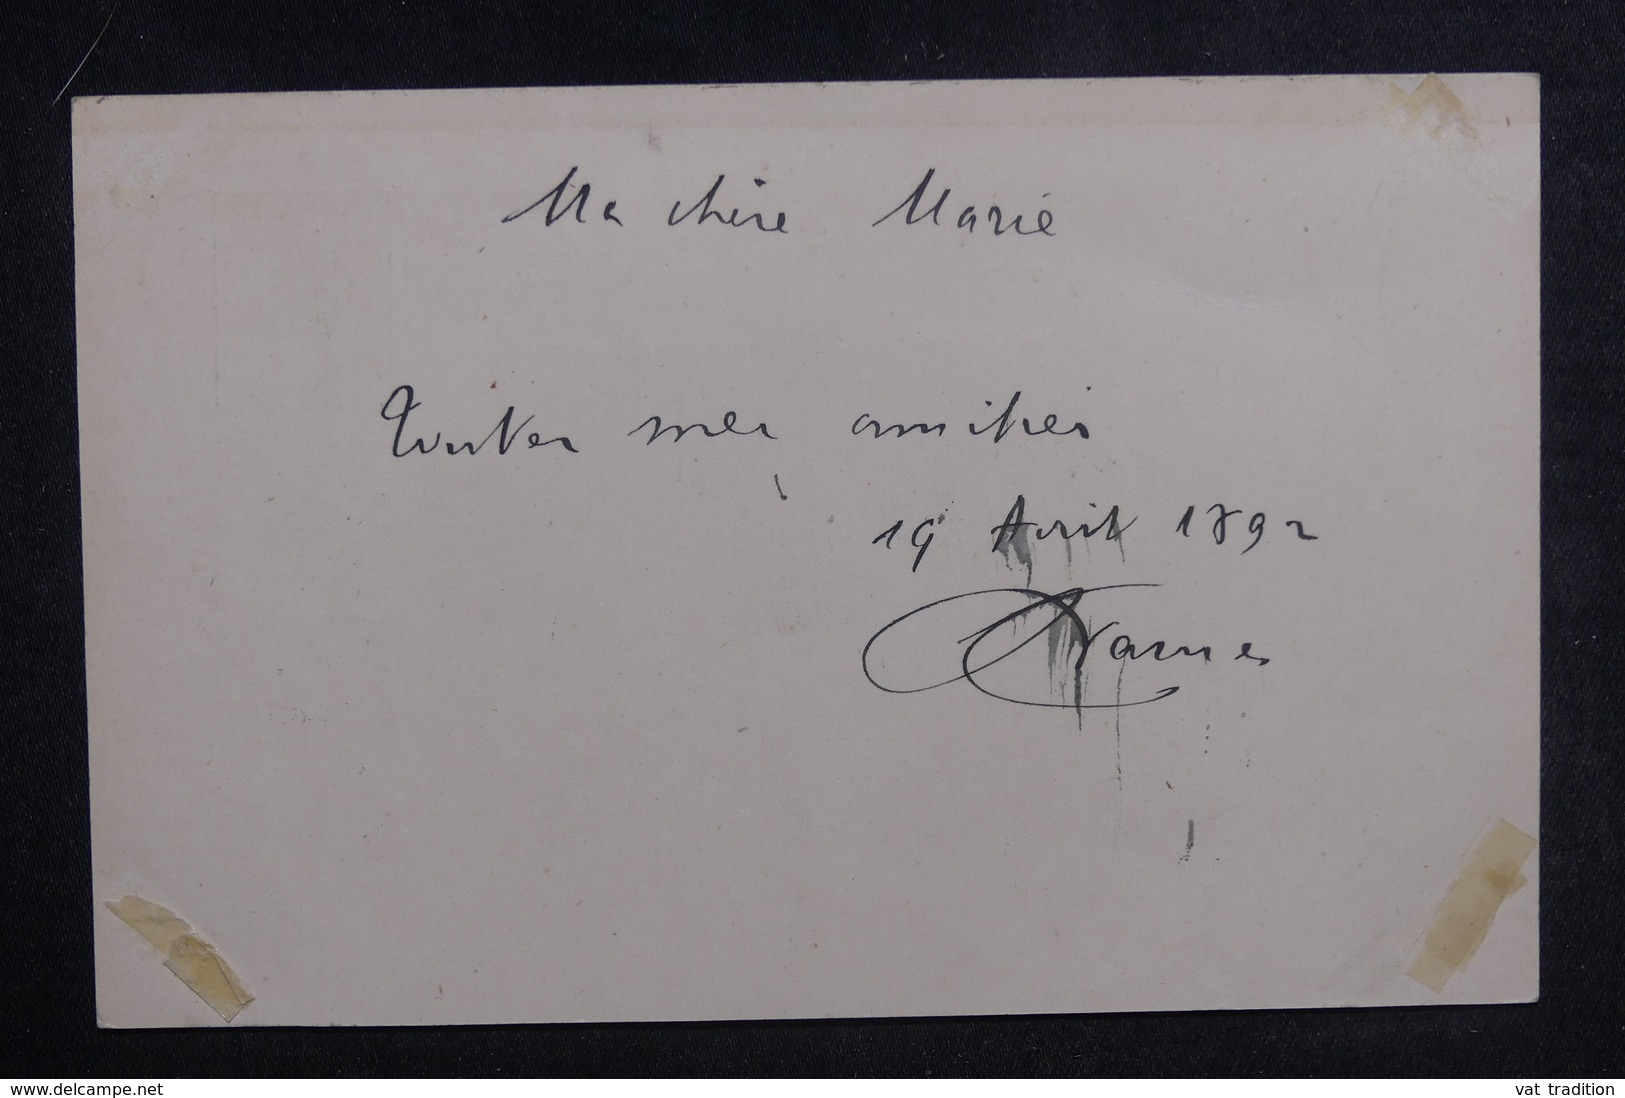 Ma chère Marie
Toutes mes amitiés
19 Avril 1892
www.delcampe.net
vat_tradition